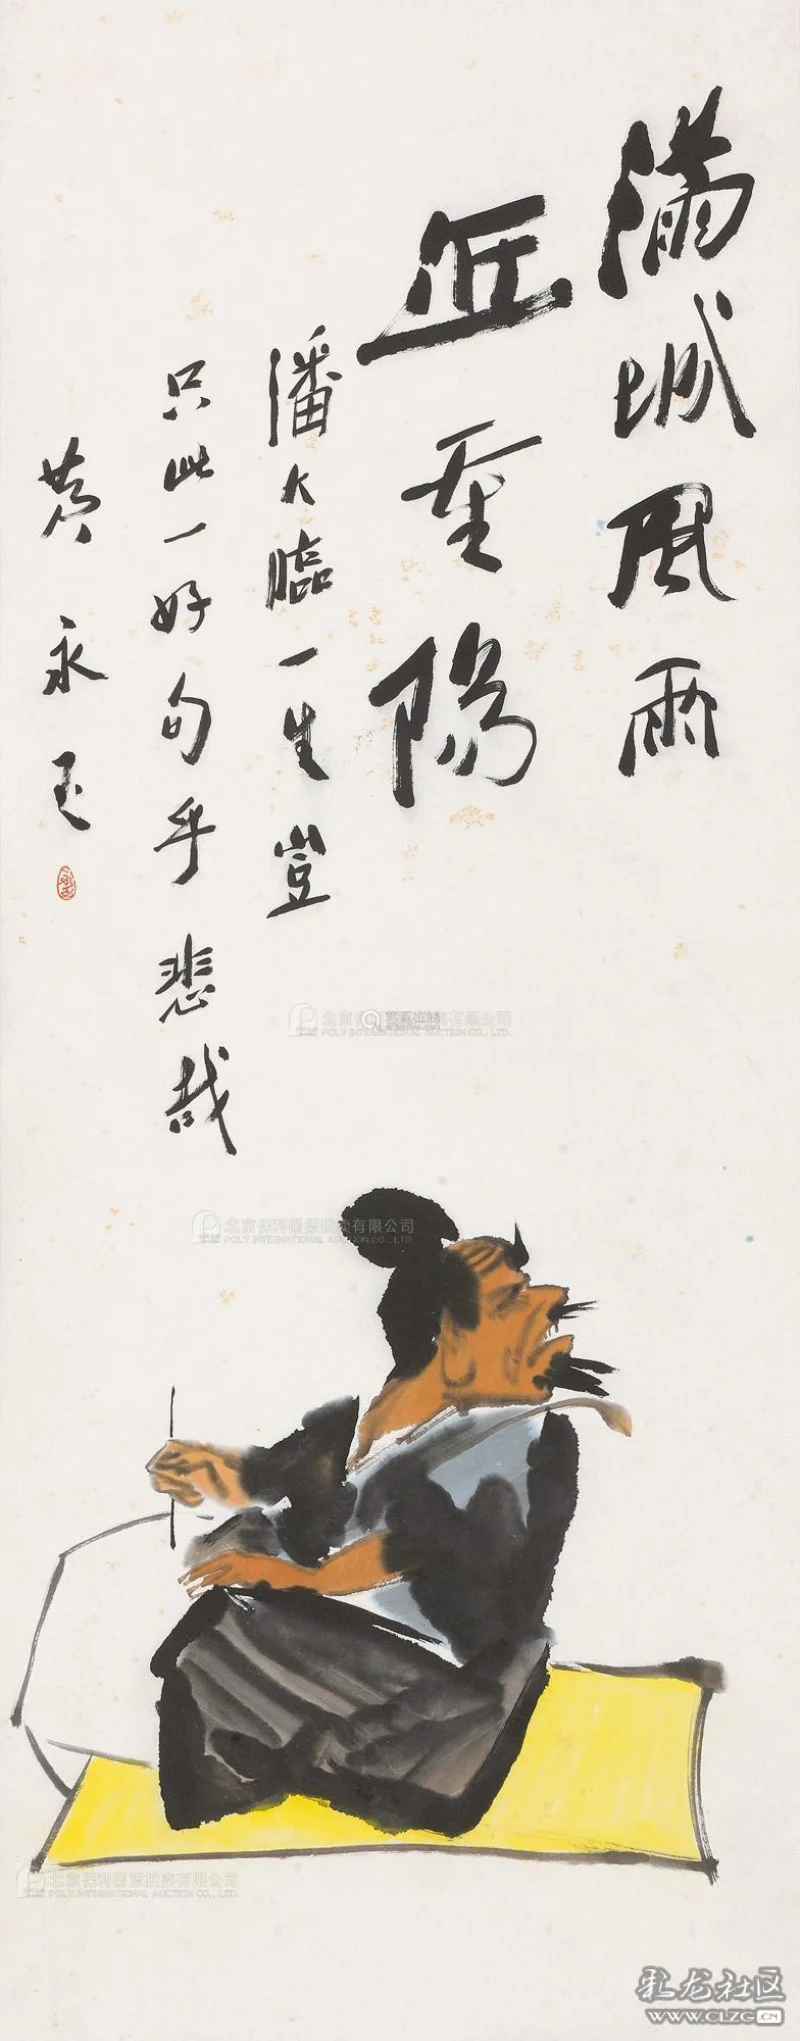 滿城風雨
近重陽
潘大臨一生豈
只此一好句乎悲哉
黃永玉
POLY INTERNATIONAL AUCTION CO., LTD.
北京保利国际拍卖有限公司
POLY INTERNATIONAL AUCTION CO., LTD.
北京保利国际拍卖有限公司
POLY INTERNATIONAL AUCTION CO., LTD.
彩龙社区
WWW.CLZG.CN